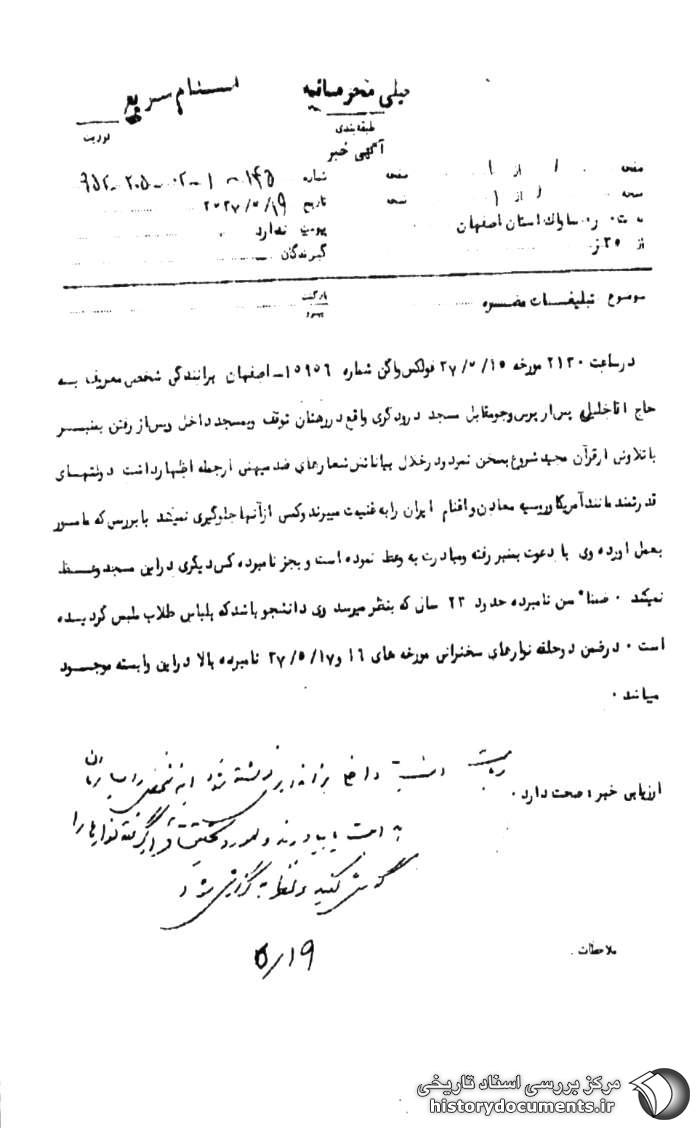 خیلی محرمانه
طبقه‌بندی
آگهی خبر
فوریت
صفحه ۱ از ۱ صفحه
شماره
نسخه ۱ از ۱ نسخه
تاریخ ۲۰۳۷/۵/۱۹
ساواك استان اصفهان
پیوست ندارد
از ۲۵ ز
گیرندگان
موضوع تبلیغات مضره
بازگشت
پیرو
در ساعت ۲۱۳۰ مورخه ۳۷/۵/۱۵ فولکس واگن شماره ۱۵۹۵۶ـ اصفهان برانندگی شخصی معروف به
حاج اقا خلیلی پس از پرس و جو مقابل مسجد درودگری واقع در رهنان توقف و بمسجد داخل و پس از رفتن بمنبر
با تلاوتی از قرآن مجید شروع بسخن نمود و در خلال بیاناتش شعارهای ضد میهنی از جمله اظهار داشت دولتهای
قدرتمند مانند آمریکا و روسیه معادن و اغنام ایران را به غنیمت میبرند و کسی از آنها جلوگیری نمیکند با بررسی که مامور
بعمل اورده وی با دعوت بمنبر رفته و مبادرت به وعظ نموده است و بجز نامبرده کس دیگری در این مسجد وعظ
نمیکند ۰ ضمنا" سن نامبرده حدود ۲۳ سال که بنظر میرسد وی دانشجو باشد که بلباس طلاب ملبس گردیده
است ۰ در ضمن دو حلقه نوارهای سخنرانی مورخه های ۱۶ و ۳۷/۵/۱۷ نامبرده بالا در این وابسته موجود
میباشد ۰
ارزیابی خبر : صحت دارد ۰
گوش کنید
۵/۱۹
ملاحظات ۰
مرکز بررسی اسناد تاریخی
historydocuments.ir